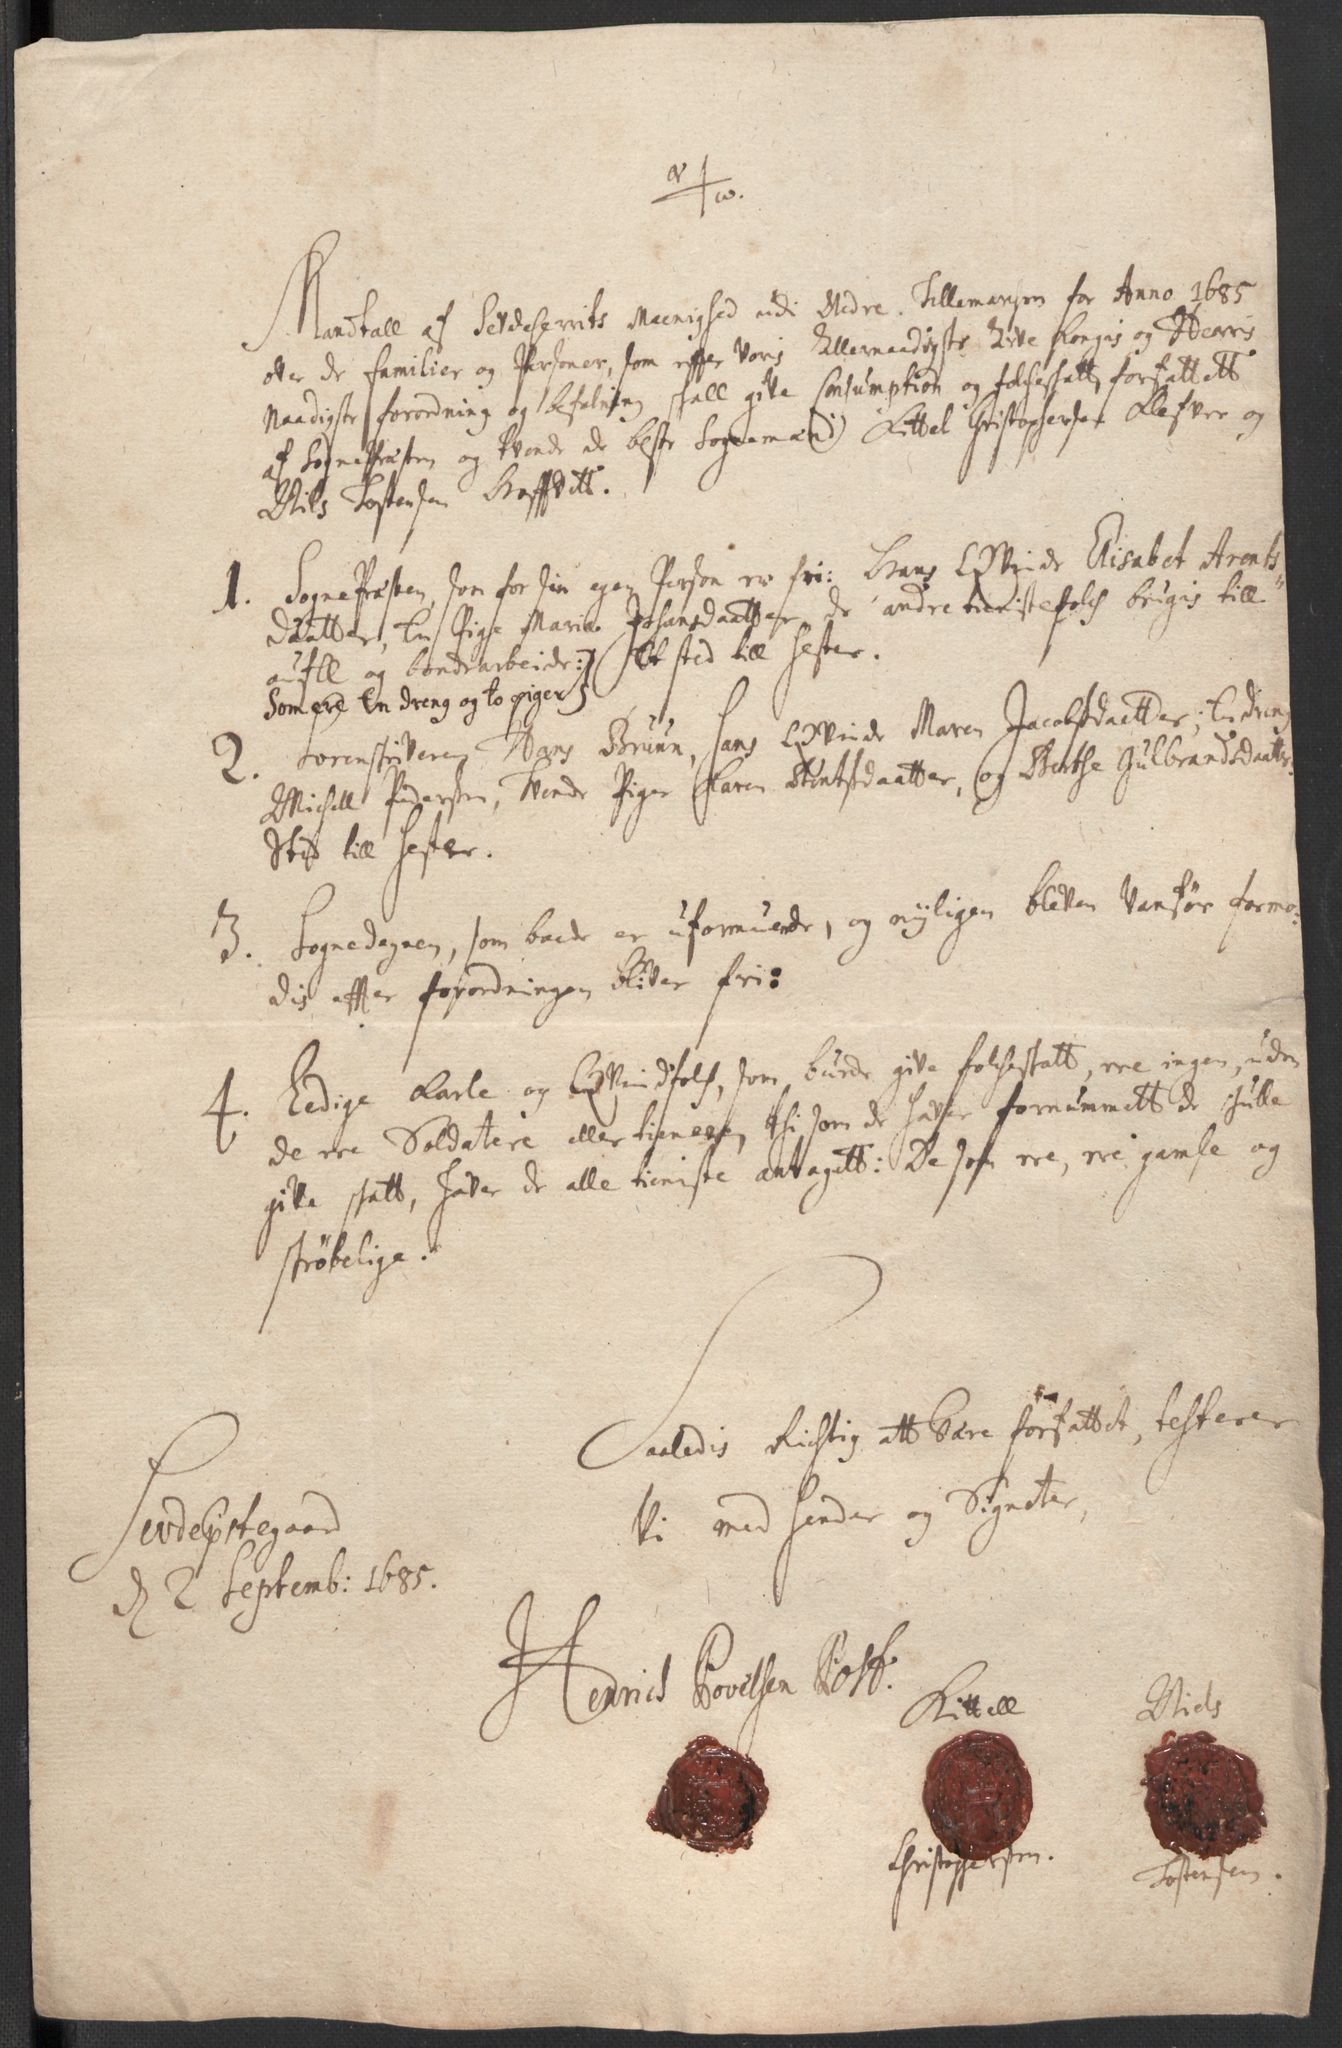 Mandtall af Sevdeherrits Meenighed udi Nedre Tillemarchen for Anno 1685
over de familier og Personer, som efter Voris Allernaadigste Arve Kongis og Herris
Naadigste forordning og befalning skall give Consumption og folcheskatt, forfattett
af SognePræsten og tvende de beste Sognemænd Kittel Christophersen Klefver og
Niels Tostensen
1. SognePræsten, som for sin egen Person er fri: Hans Qvinde Elisabet Arents
daatter, En Pige Maria Johansdaatter, de andre tienistefolch brugis till
aufll og bondearbeide: Et sted till hester.
Som ere En dreng og to piger
2. Sorenskriveren Hans Bruun, hans Qvinde Maren Jacobsdaatter, En dreng
Michell Pedersen, Tvende Piger Karen Bentsdaatter, og Berthe Gulbrandsdaatter
Sted till hester.
3. Sognedegnen, som baade er uformuende, og nyligen bleven Vanför formo-
dis effter forordningen bliver fri:
4. Ledige Karle og Qvindfolch, som burde give folcheskatt, ere ingen, uden
de ere Soldatere eller tienere, thi som de haver fornummett de skulle
give skatt, haver de alle tieniste antagett: De som ere, ere gamle og
skröbelige.
Saaledis Richtig att Være forfattet, testerer
Vi med hender og Signeter,
Sevdepstegaard
d 2 Septemb: 1685.
Henrich Povelsen Post.
Kittell
Christophersen.
Niels
Tostensen.